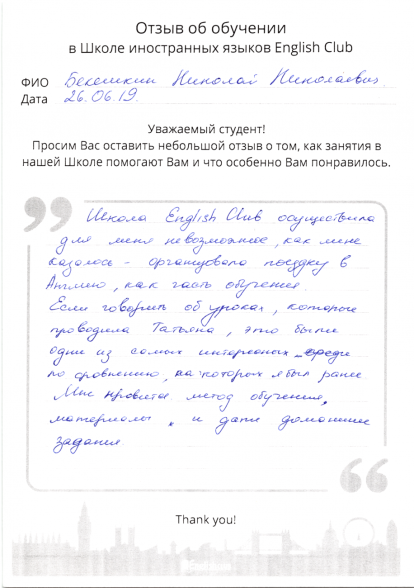 Отзыв об обучении
в Школе иностранных языков English Club
ФИО Бекешкин Николай Николаевич.
Дата 26.06.19.
Уважаемый студент!
Просим Вас оставить небольшой отзыв о том, как занятия в
нашей Школе помогают Вам и что особенно Вам понравилось.
Школа English Club осуществила
для меня невозможное, как мне
казалось – организовала поездку в
Англию, как часть обучения.
Если говорить об уроках, которые
проводила Татьяна, это были
одни из самых интересных среди
по сравнению, на которых я был ранее
Мне нравится метод обучения,
материалы, и даже домашние
задания
Thank you!